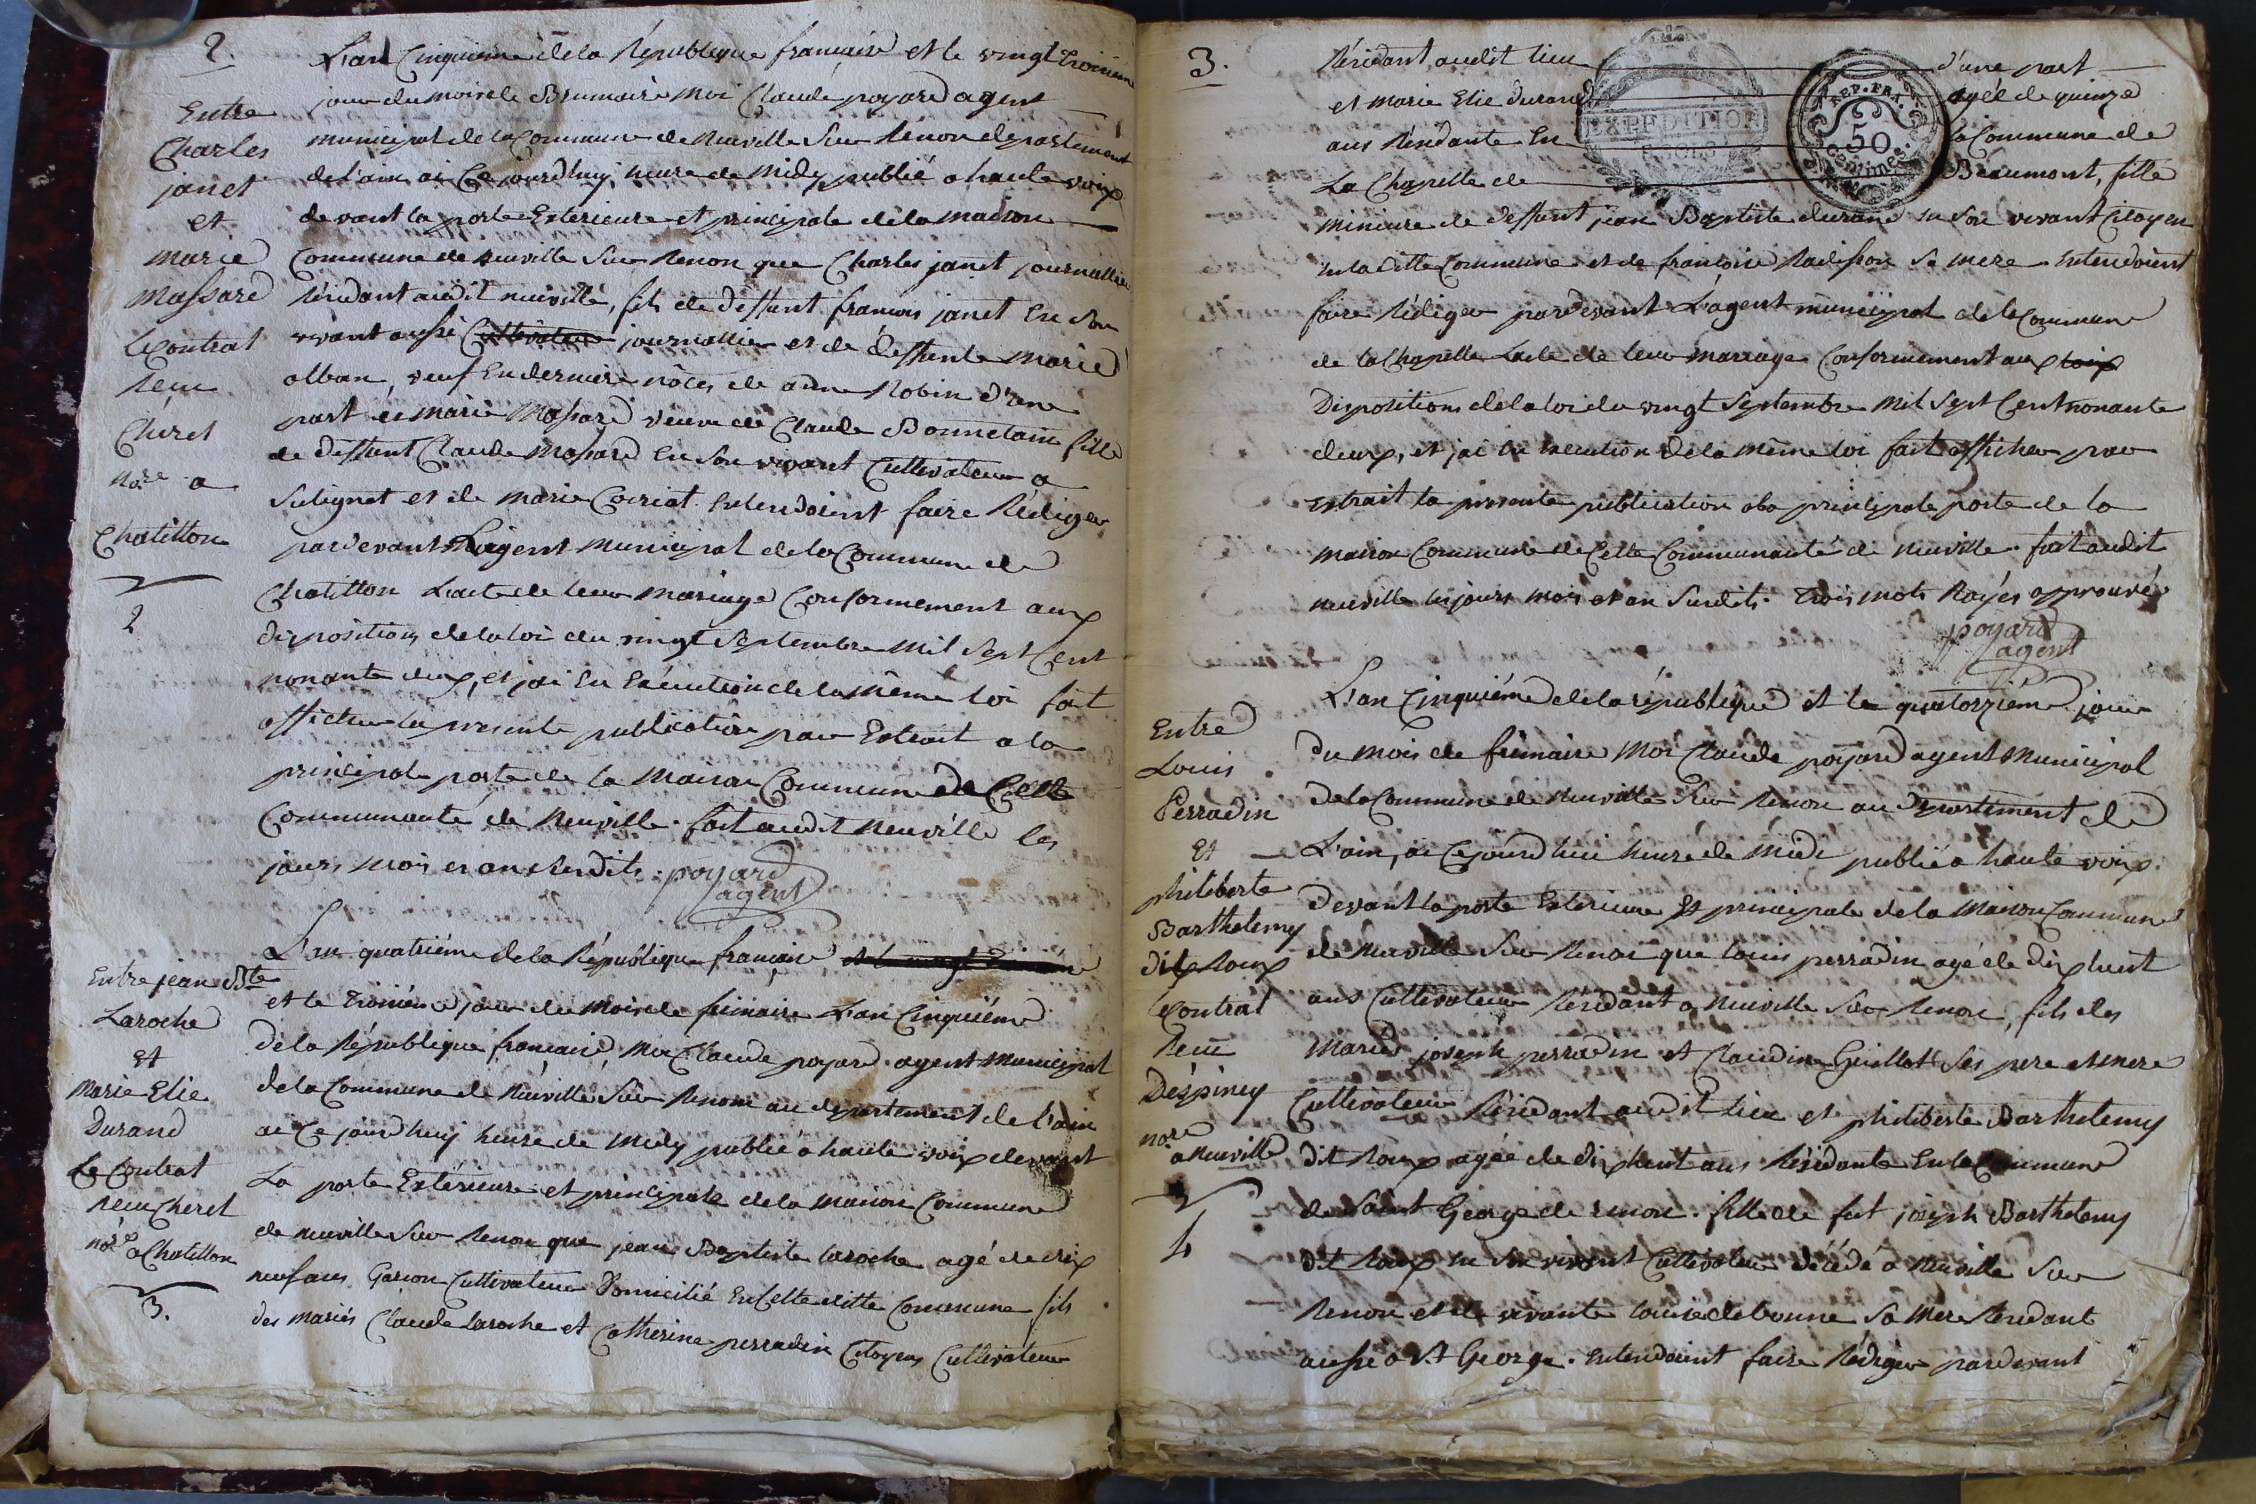 2.
L'an Cinquieme de la République francaise et le vingt troisieme
jour du mois de Brumaire Moi Claude poyard agent
municipal de la Commune de Neuville sur Renon departement
de l'ain ai Ce jourd'huy heure de Midy publié a haute voix
devant la porte Exterieure et principale de la maison
Commune de Neuville sur Renon que Charles janet journallier
Résidant audit neuville, fils de deffunt francois janet En son
vivant aussi Cultivateur journallier et de deffunte Marie
alban, veuf En derniere nôces de anne Robin d'une
part et Marie Massard veuve de Claude Bonnetain fille
de deffunt Claude Massard En son vivant Cultivateur a
Sulignat et de Marie Coriat. Entendoient faire Rédiger
pardevant L'agent municipal de la Commune de
Chatillon L'acte de leur mariage Conformement aux
dispositions de la loi du vingt Septembre Mil Sept Cent
nonante deux, et jai En Exécution de la même loi fait
afficher la presente publication par Extrait a la
principale porte de la Maison Commune de Cette
Communauté de Neuville. fait audit Neuville les
jours mois et an susdits. poyard
agent
Entre
Charles
janet
et
Marie
Massard
le Contrat
Reçu
Cheret
no.re a
Chatillon
2
L'an quatriéme de la République francaise et le vingt
et le troisiéme jour du mois de frimaire L'an Cinquiéme
de la République francaise, Moi Claude poyard agent Municipal
de la Commune de Neuville sur Renom au departement de l'ain
ai Ce jourd'huy heure de Midy publié a haute voix devant
La porte Extérieure et principale de la Maison Commune
de neuville sur Renon que jean Baptiste laroche agé de dix
neuf ans Garcon Cultivateur Domicilié En Cette ditte Commune fils
des mariés Claude Laroche et Catherine perradin Citoyens Cultivateur
Entre jean Bte
Laroche
Et
Marie Elie
Durand
Le Contrat
Recu Cheret
no.re a Chatillon
3.
3.
Résidant audit lieu d'une part
et Marie Elie durand agée de quinze
ans Résidante En la Commune de
La Chapelle de Béaumont, fille
EXPEDITION
REP. FRA.
50
Centimes.
mineure de deffunt jean Baptiste durand en son vivant Citoyen
En la ditte Commune et de francoise Radisson sa mere. Entendoient
faire Rédiger pardevant L'agent municipal de la Commune
de la Chapelle L'acte de leur mariage Conformement aux loix
Dispositions de la loi du vingt Septembre Mil Sept Cent nonante
deux, et jai En Execution de la même loi fait afficher par
Extrait la presente publication a la principale porte de la
maison Commune de Cette Communauté de Neuville. fait audit
neuville les jours mois et an susdits. trois mots Rayés approuvé
poyard
agent
L'an Cinquiéme de la république et le quatorziéme jour
du Mois de frimaire Moi Claude poyard agent Municipal
de la Commune de Neuville sur Renon au departement de
L'ain, ai Ce jourd'hui heure de Midi publié a haute voix
devant la porte Exterieure Et principale de la Maison Commune
de Neuville Sur Renon que Louis perradin agé de dix huit
ans Cultivateur Résidant a Neuville sur Renon, fils des
Mariés joseph perradin et Claudine Guillot Ses pere et mere
Cultivateur Résidant audit lieu et philiberte Barthelemy
dit Roux agée de dix huit ans Résidante En la Commune
de Saint George de renon. fille de fut joseph Barthelemy
dit Roux En Son vivant Cultivateur décédé a Neuville Sur
Renon et de vivante Louise debonne Sa Mere Residant
aussi a St George. Entendoient faire Rédiger pardevant
Entre
Louis
Perradin
Et
philiberte
Barthelemy
dit Roux
Contrat
Recu
Déspiney
no.re
a Neuville
4